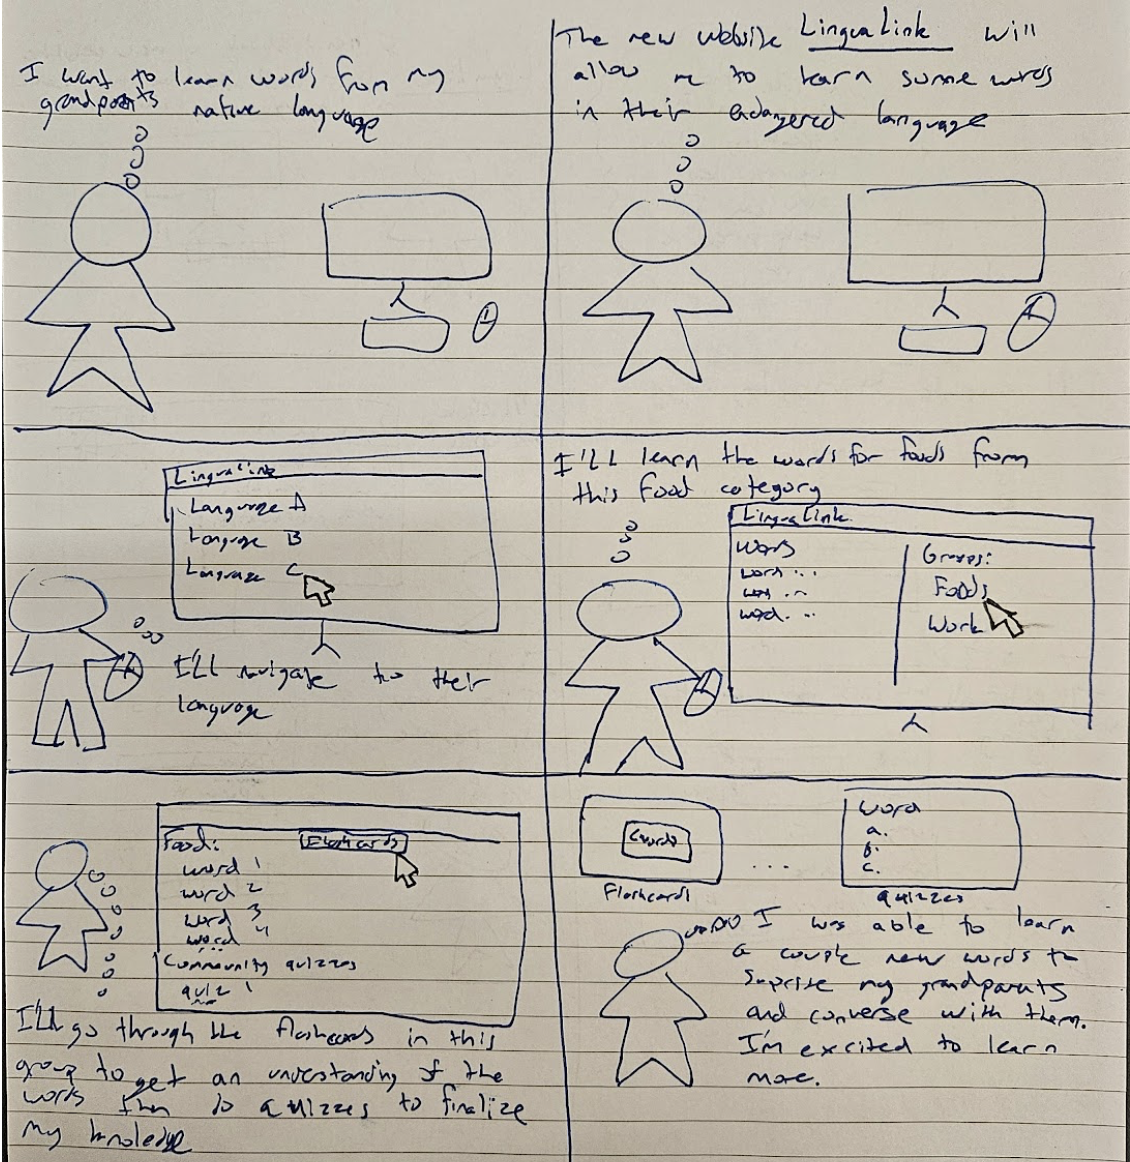 I want to learn words from my
grandparents native language
The new website LinguaLink will
allow me to learn some words
in their endangered language
LinguaLink
Language A
Language B
Language C
I'll navigate to their
language
I'll learn the words for foods from
this food category
LinguaLink
Words
word ...
word ...
word ...
Groups:
Foods
Work
Food:
Flashcards
word 1
word 2
word 3
word 4
Community quizzes
quiz 1
I'll go through the flashcards in this
group to get an understanding of the
words then do quizzes to finalize
my knoledge
Flashcards
...
word
a.
b.
c.
quizzes
I was able to learn
a couple new words to
suprise my grandparents
and converse with them.
I'm excited to learn
more.